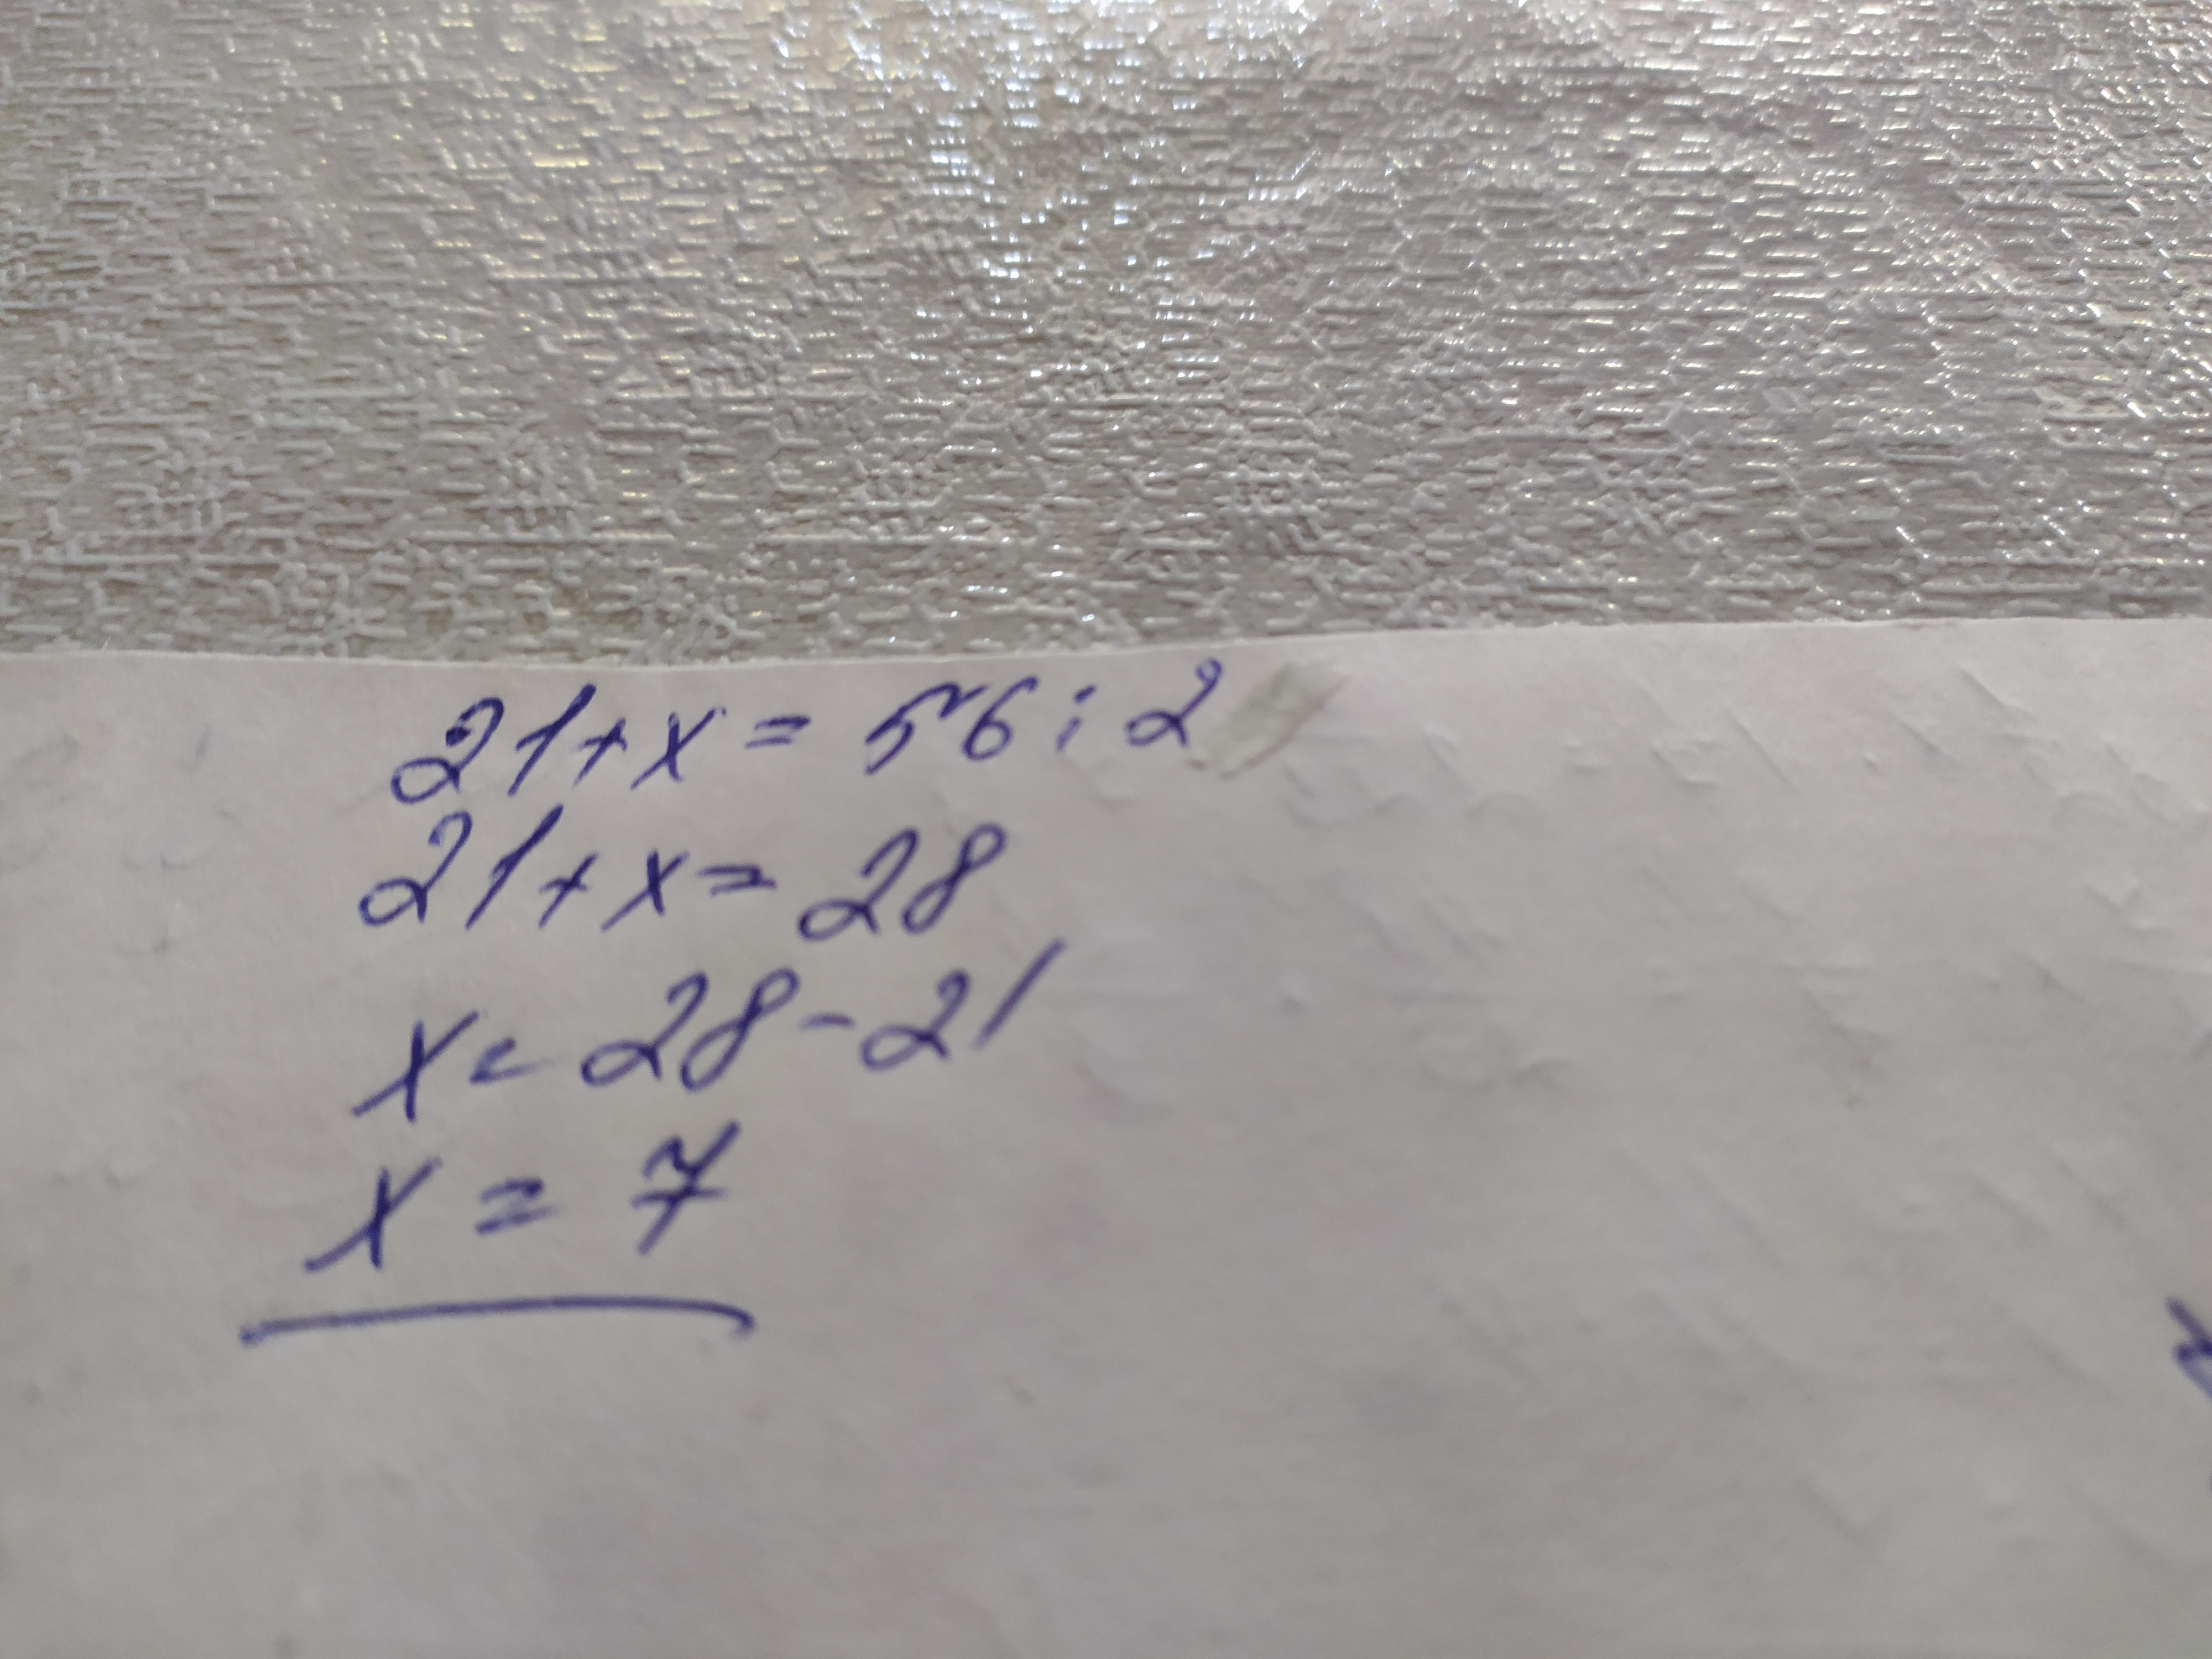 21+x=56:2
21+x=28
x=28-21
x=7